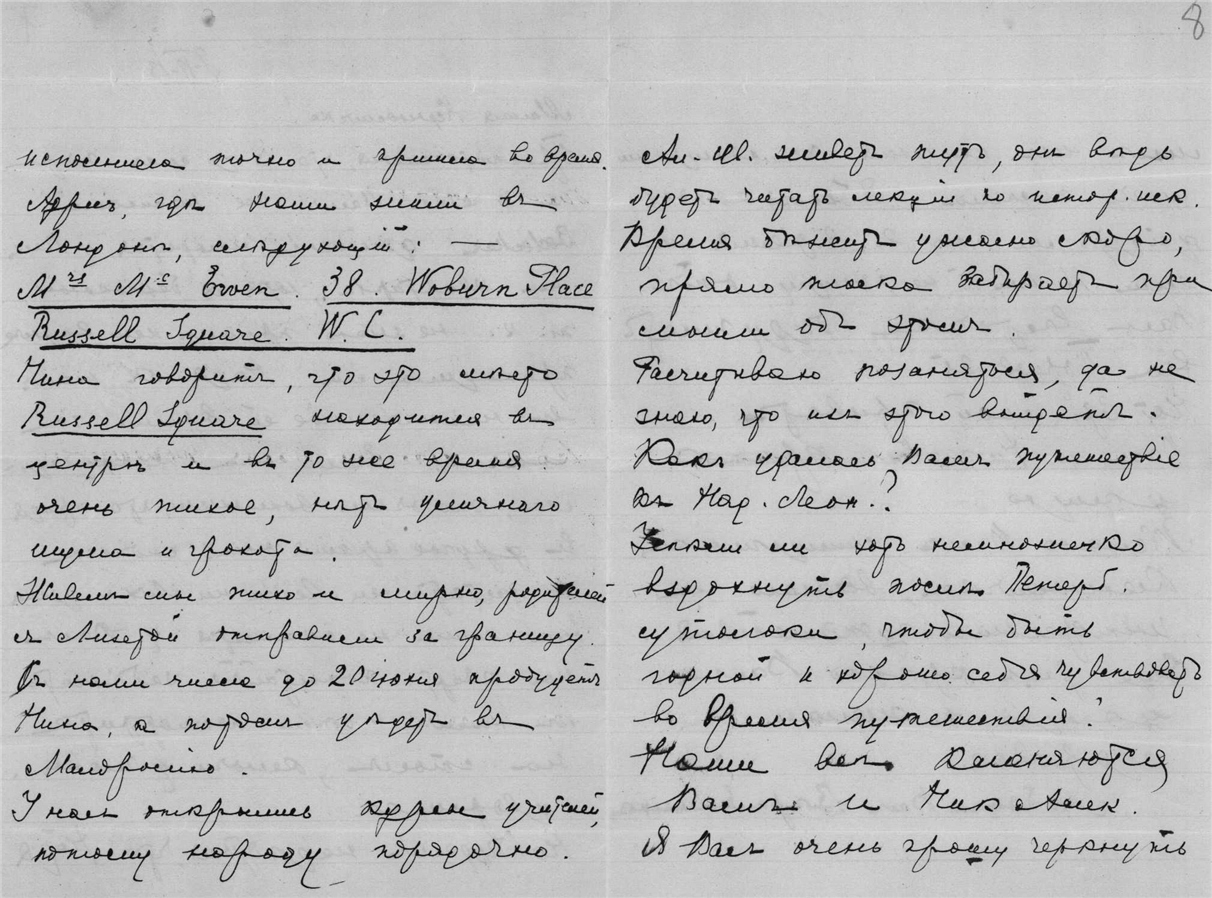 8
исполнила точно и пришла во время.
Адрес, где наши жили въ
Лондонѣ, слѣдующій: —
Mrs Mc Ewen. 38. Woburn Place
Russell Square. W. C.
Нина говоритъ, что это мѣсто
Russell Square находится въ
центрѣ и въ то же время
очень тихое, нѣтъ уличнаго
шума и грохота.
Живемъ мы тихо и мирно, родителей
и Лизетой отправили за границу.
Съ нами числа до 20 іюня пробудетъ
Нина, а потомъ уѣдетъ въ
Малороссію.
У насъ открылись курсы учителей,
потому народу порядочно.
Ал. Ив. живетъ тутъ, онъ вѣдь
будетъ читать лекціи по истор. иск.
Время бѣжитъ ужасно скоро,
прямо тоска забираетъ при
мысли объ этомъ.
Расчитываю позаняться, да не
знаю, что изъ этого выйдетъ.
Какъ удалось Вамъ путешествіе
къ Над. Леон.?
Успѣли ли хоть немножечко
вздохнуть послѣ Петерб.
сутолоки, чтобы быть
годной и хорошо себя чувствовать
во время путешествія?
Наши всѣ кланяются
Вамъ и Ник Алек.
Я Васъ очень прошу черкнуть